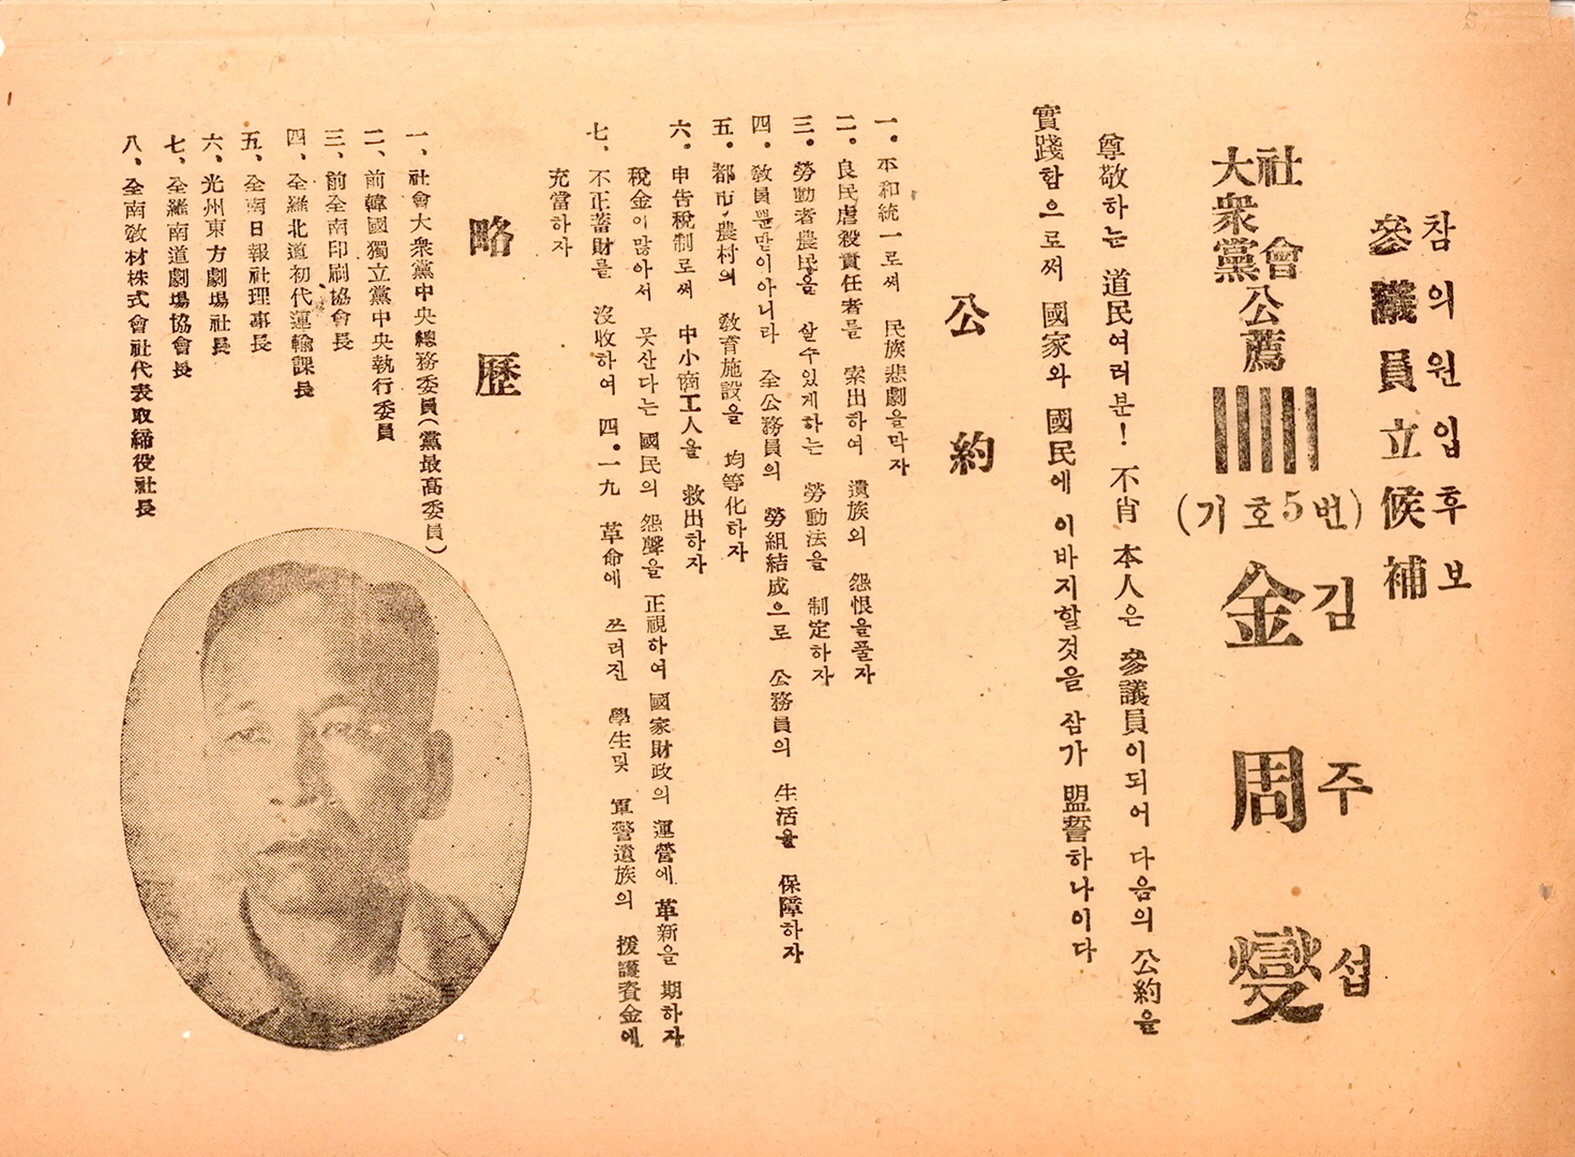 참의원입후보
參議員立候補
社會
大衆黨
公薦
(기호5번)
김주섭
金周燮
尊敬하는 道民여러분! 不肖 本人은 參議員이되어 다음의 公約을
實踐함으로써 國家와 國民에 이바지할것을 잠가 盟誓하나이다
公約
一. 平和統一로써 民族悲劇을막자
二. 良民虐殺責任者를 索出하여 遺族의 怨恨을풀자
三. 勞動者農民을 살수있게하는 勞動法을 制定하자
四. 敎員뿐만이아니라 全公務員의 勞組結成으로 公務員의 生活을 保障하자
五. 都市, 農村의 敎育施設을 均等化하자
六. 申告稅制로써 中小商工人을 救出하자
稅金이많아서 못산다는 國民의 怨聲을 正視하여 國家財政의 運營에 革新을 期하자
七. 不正蓄財를 沒收하여 四.一九 革命에 쓰러진 學生및 軍警遺族의 援護資金에
充當하자
略歷
一、社會大衆黨中央總務委員(黨最高委員)
二、前韓國獨立黨中央執行委員
三、前全南印刷協會長
四、全羅北道初代運輸課長
五、全南日報社理事長
六、光州東方劇場社長
七、全羅南道劇場協會長
八、全南敎材株式會社代表取締役社長